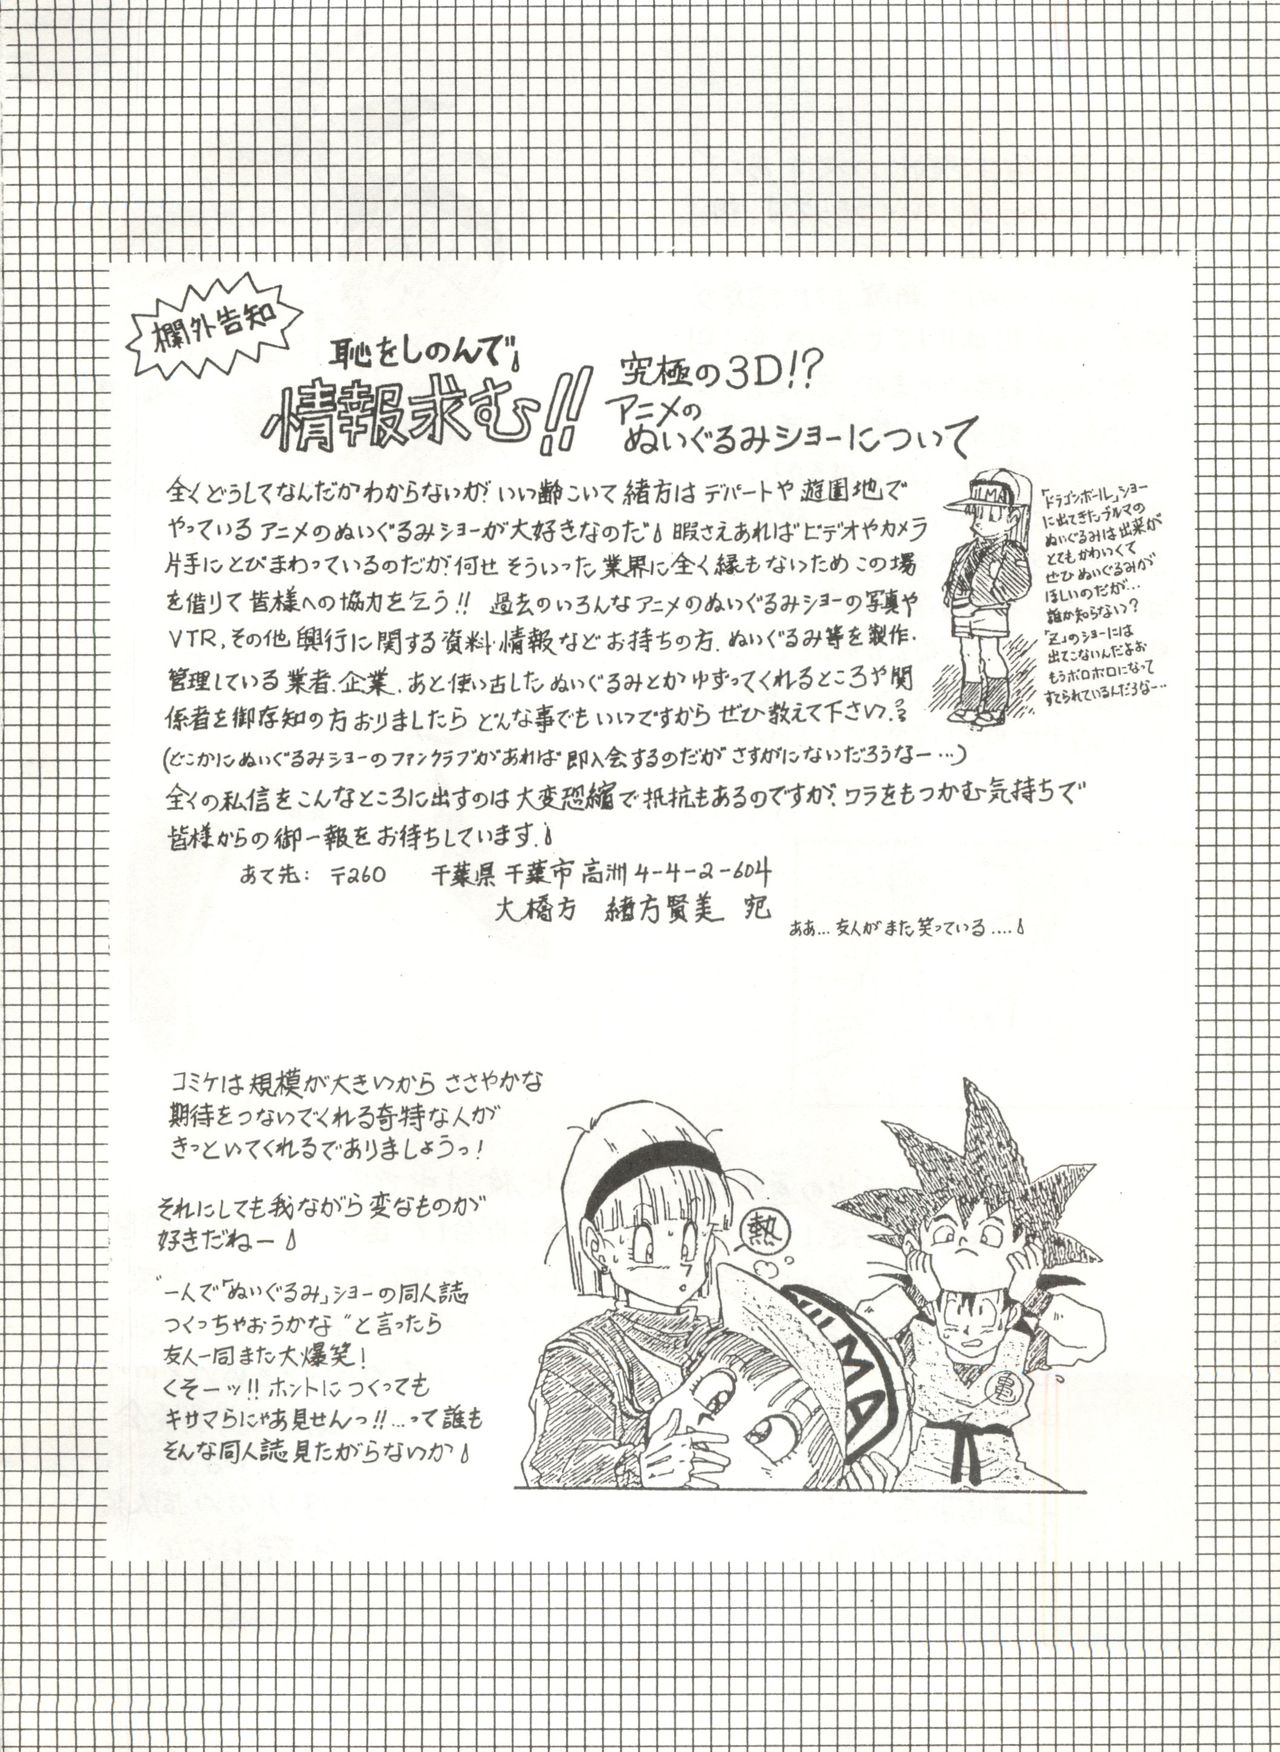 欄外告知
恥をしのんで♪
情報求む!!
究極の3D!?
アニメの
ぬいぐるみショーについて
全くどうしてなんだかわからないが、いい齢こいて緒方はデパートや遊園地で
やっているアニメのぬいぐるみショーが大好きなのだ♪ 暇さえあればビデオやカメラ
片手にとびまわっているのだが、何せそういった業界に全く縁もないためこの場
を借りて皆様への協力を乞う!! 過去のいろんなアニメのぬいぐるみショーの写真や
VTR,その他興行に関する資料・情報などお持ちの方、ぬいぐるみ等を製作・
管理している業者、企業、あと使い古したぬいぐるみとかゆずってくれるところや関
係者を御存知の方おりましたらどんな事でもいいですからぜひ教えて下さい。
(どこかにぬいぐるみショーのファンクラブがあれば即入会するのだがさすがにないだろうなー…)
全くの私信をこんなところに出すのは大変恐縮で抵抗もあるのですが、ワラをもつかむ気持ちで
皆様からの御一報をお待ちしています♪
あて先: 〒260 千葉県千葉市高洲4-4-2-604
大橋方 緒方賢美 宛
ああ…友人がまた笑っている....♪
ILMA
「ドラゴンボール」ショー
に出てきたブルマの
ぬいぐるみは出来が
とてもかわいくて
ぜひぬいぐるみが
ほしいのだが…
誰か知らない?
「Z」のショーには
出てこないんだよお
もうボロボロになって
すてられているんだろなー…
コミケは規模が大きいからささやかな
期待をつないでくれる奇特な人が
きっといてくれるでありましょうっ!
それにしても我ながら変なものが
好きだねー♪
"一人で「ぬいぐるみ」ショーの同人誌
つくっちゃおうかな"と言ったら
友人一同また大爆笑!
くそーッ!! ホントにつくっても
キサマらにゃあ見せんっ!!…って誰も
そんな同人誌見たがらないか♪
熱
ILMA
亀